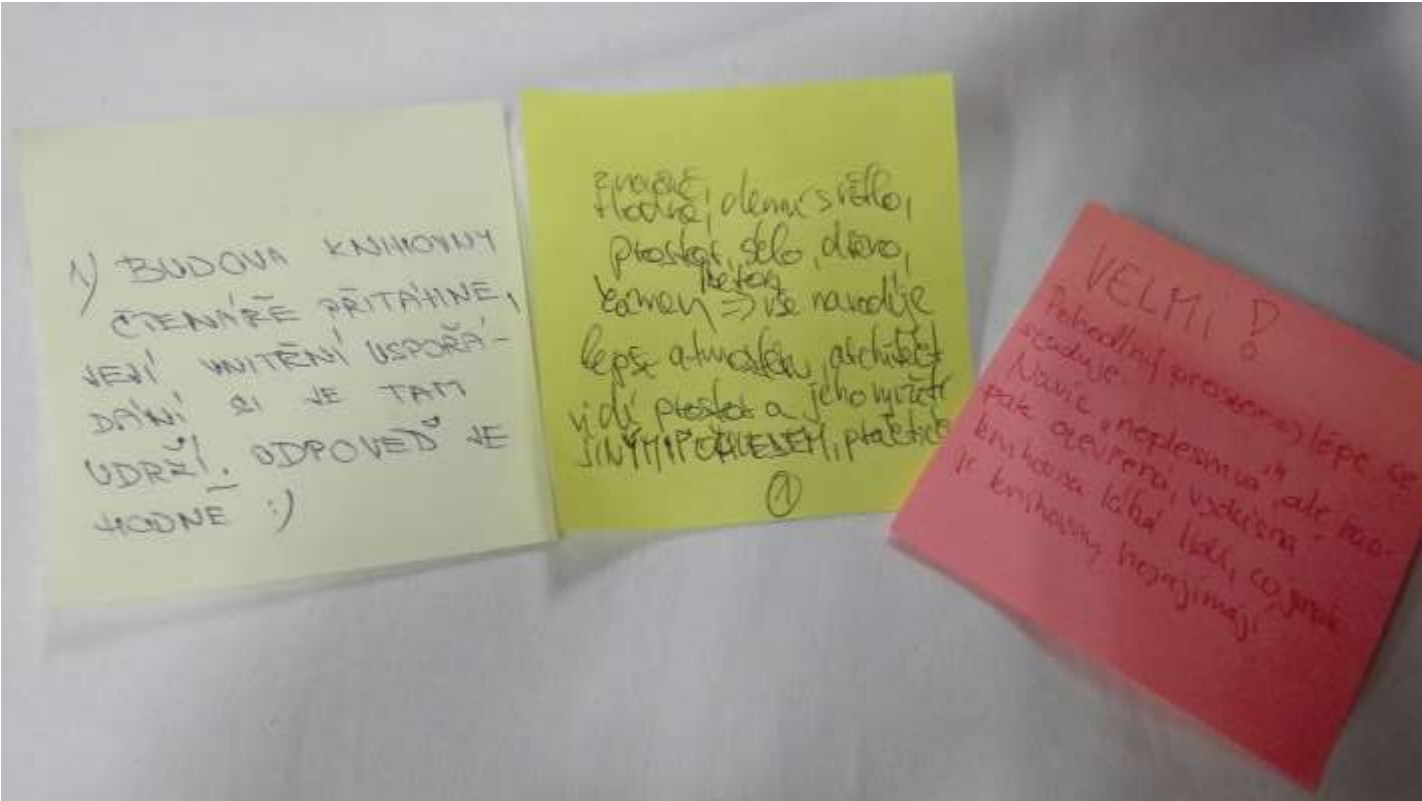 1) BUDOVA KNIHOVNY
ČTENÁŘE PŘITÁHNE,
JEJÍ VNITŘNÍ USPOŘÁ-
DÁNÍ SI JE TAM
UDRŽÍ. ODPOVEĎ JE
HODNĚ :)
značně
Hodně, denní světlo,
prostor, sklo, dřevo,
beton
kámen => vše navozuje
lepší atmosféru, architekt
vidí prostor a jeho využití
JINÝM POHLEDEM, praktické
1
VELMI!
Pohodlný prostor => lépe se
studuje.
Navíc "neplesnivá", ale nao-
pak otevřená, vzdušná
knihovna láká lidi, co jinak
je knihovny nezajímají